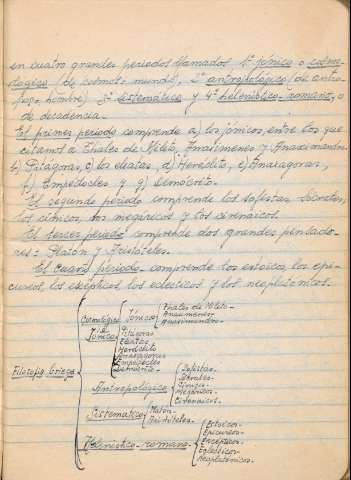 en cuatro grandes periodos llamados 1º jónico o cosmo-
lógico (de cosmos, mundo), 2º antropológico (de antro-
pos, hombre) 3º sistemático y 4º helenístico-romano, o
de decadencia.
El primer periodo comprende a) los jónicos, entre los que
citamos a Thales de Mileto, Anaxímenes y Anaximandro
b) Pitágoras, c) los eleatas, d) Heráclito, e) Anaxágoras,
f) Empédocles y g) Demócrito.
El segundo periodo comprende los sofistas, Sócrates,
los cínicos, los megáricos y los cirenaicos.
El tercer periodo comprende dos grandes pensado-
res: Platón y Aristóteles.
El cuarto periodo comprende los estoicos, los epi-
cúreos, los escépticos, los eclécticos y los neoplatónicos.
Filosofía Griega
Cosmológico
Jónico
Jónicos
Thales de Mileto
Anaxímenes
Anaximandro
Pitágoras
Eleatas
Heráclito
Anaxágoras
Empédocles
Demócrito
Antropológico
Sofistas
Sócrates
Cínicos
Megáricos
Cirenaicos
Sistemático
Platón
Aristóteles
Helenístico-romano
Estoicos
Epicúreos
Escépticos
Eclécticos
Neoplatónicos